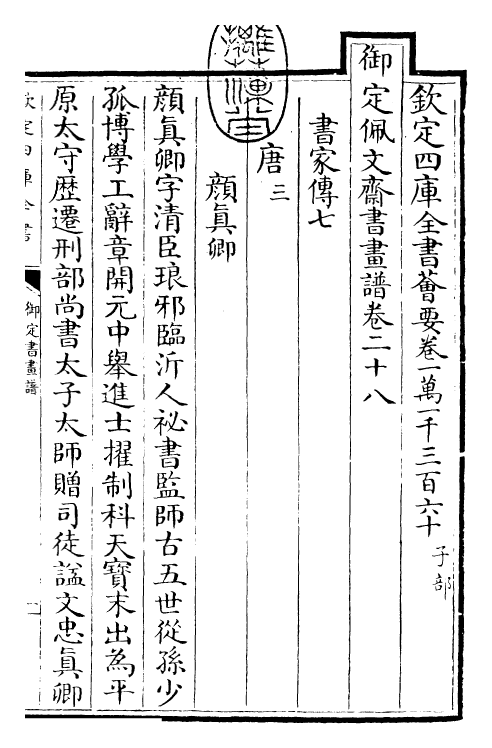 欽定四庫全書薈要卷一萬一千三百六十 子部
御定佩文齋書畫譜卷二十八
書家傳七
唐三
顔眞卿
顔眞卿字清臣琅邪臨沂人祕書監師古五世從孫少
孤博學工辭章開元中舉進士擢制科天寶末出為平
原太守歴遷刑部尚書太子太師贈司徒諡文忠眞卿
欽定四庫全書
御定書畫譜